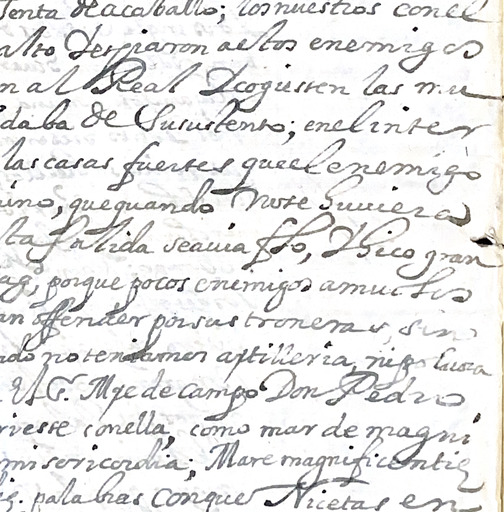 senta de acaballo; los nuestros con el
alto despiaron a los enemigos
n al Real Y cogiessen las mu
daba de Sususlento; en el inter
las casas fuertes que el enemigo
uino, que quando no se huuiera
sta salida seauia fho, Y hico gran
porque pocos enemigos a muchos
an offender por sus troneras, sino
ndo no teniamos artilleria, ni
El Sr. Mre de campo Don Pedro
uieste con ella, como mar de magni
misericordia; Mare magnificentię
palabras con que Nicetas en